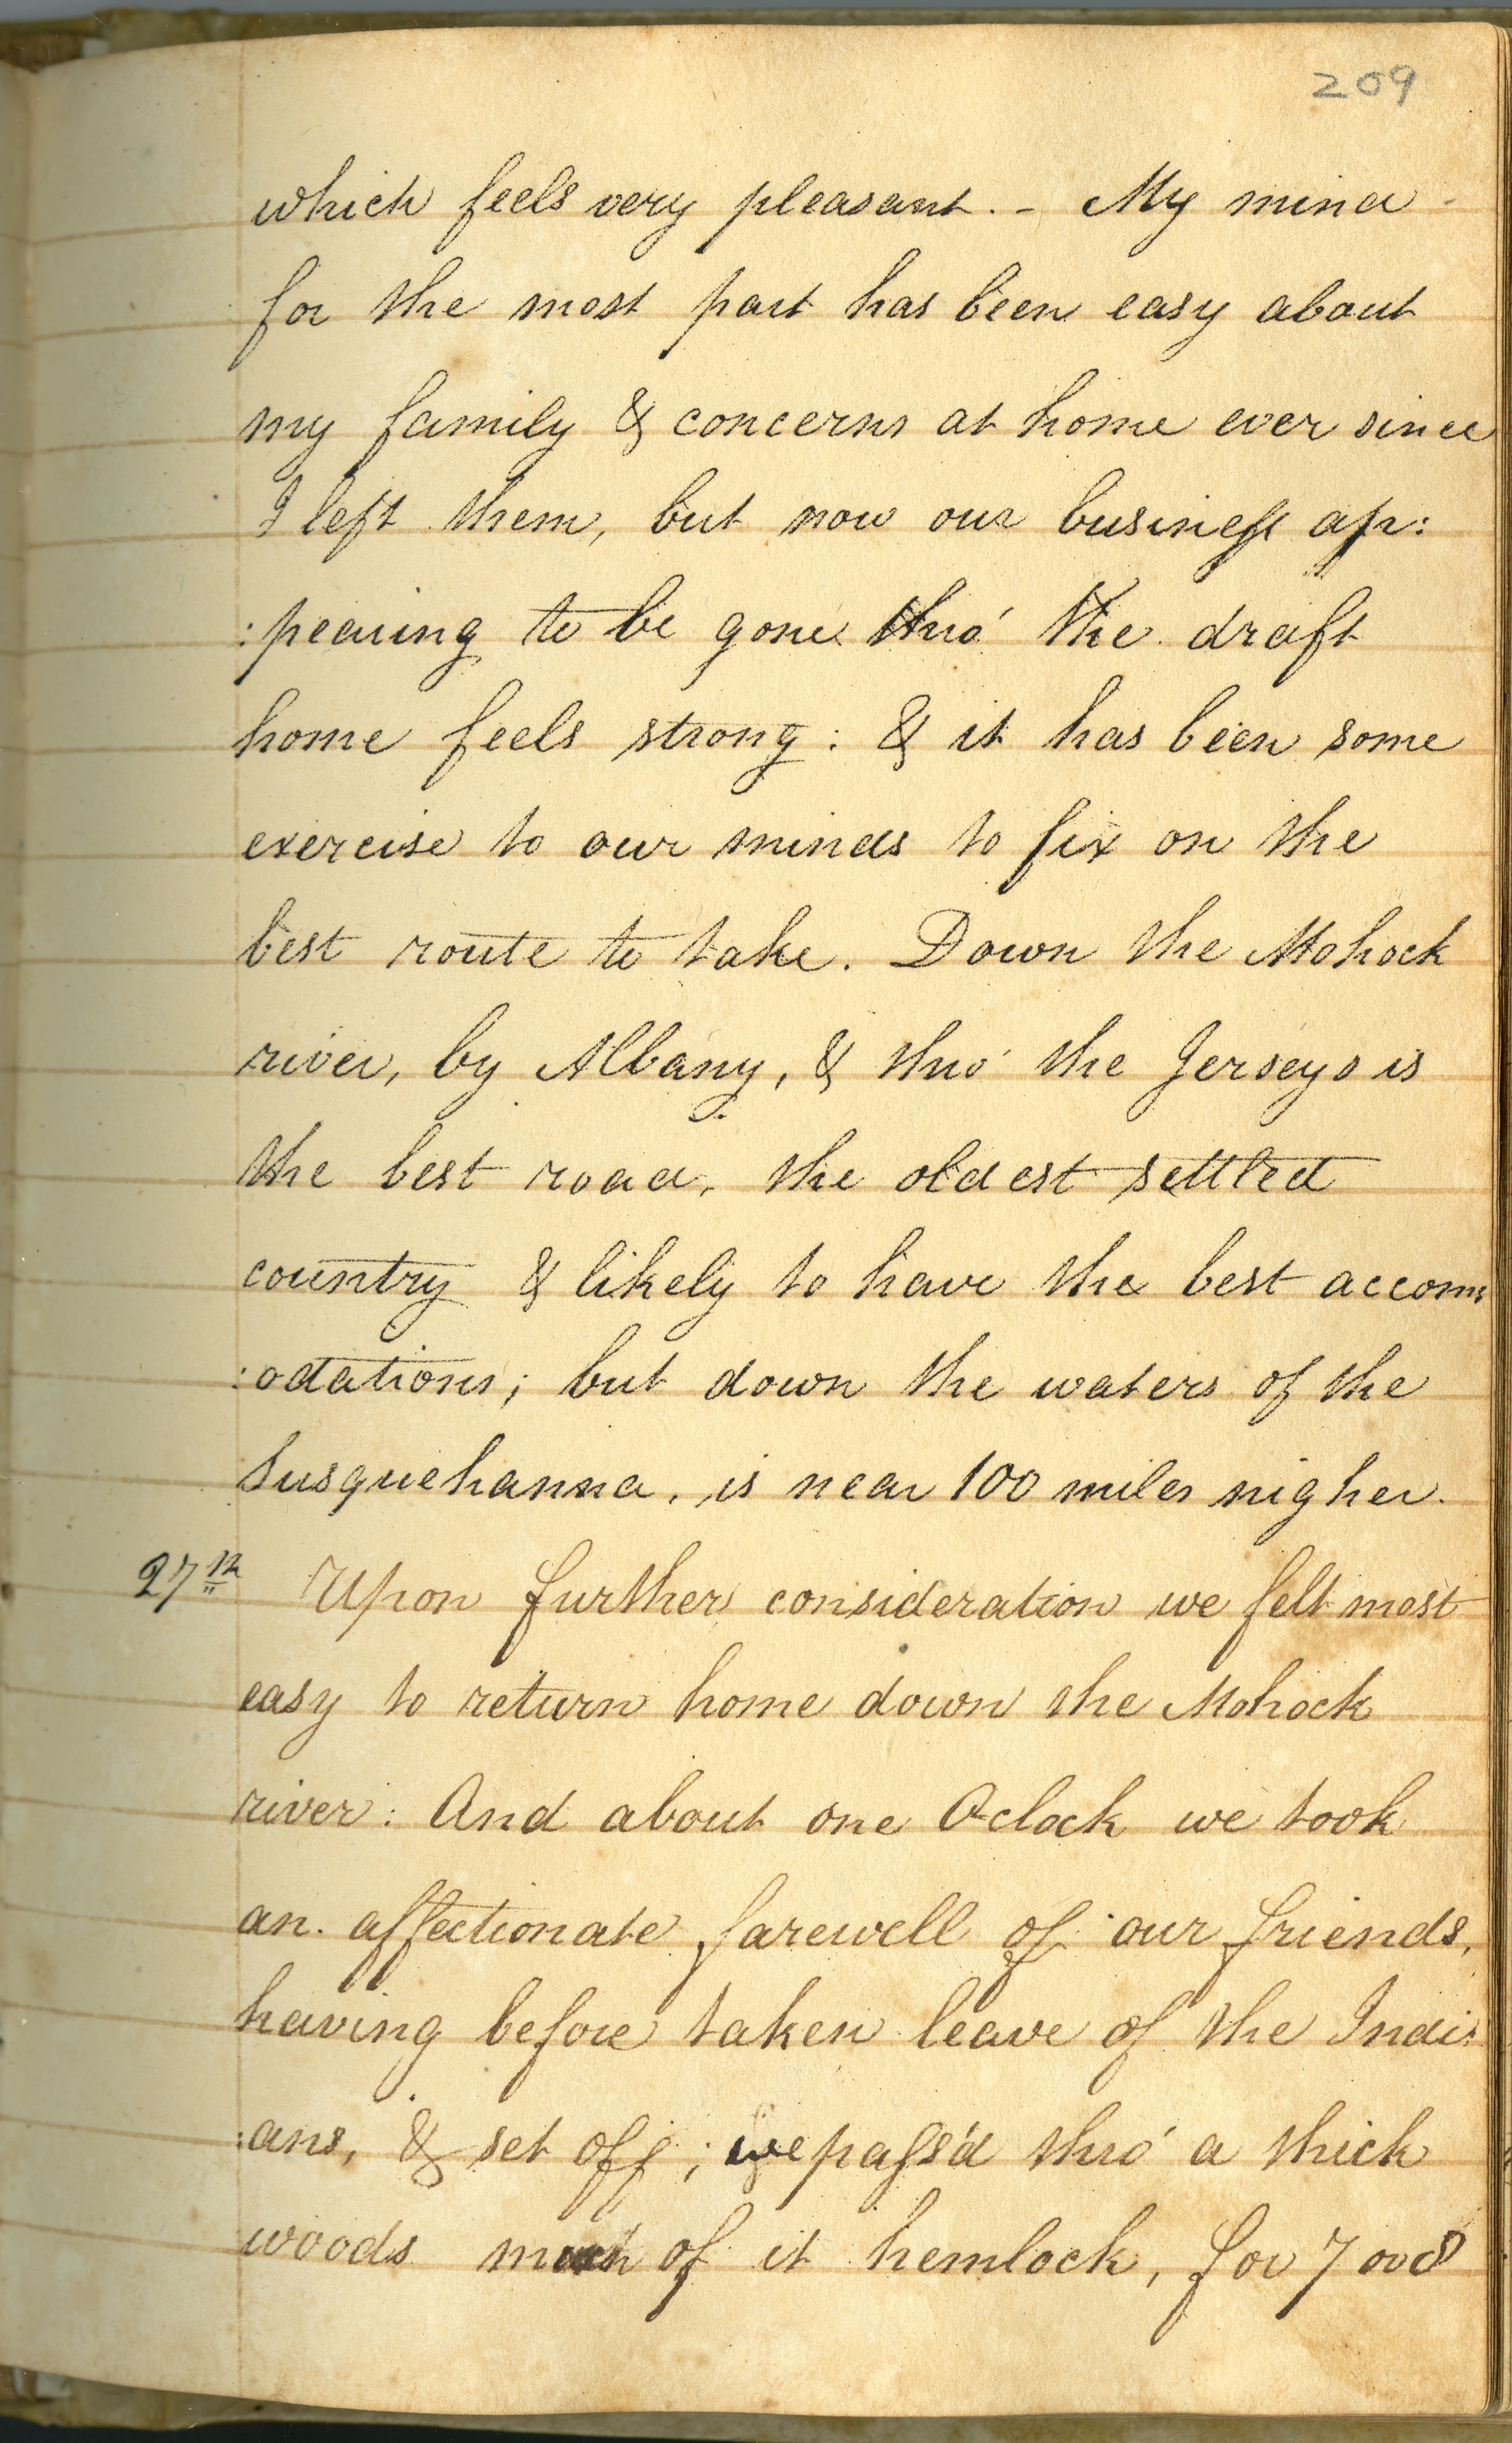 209
which feels very pleasant. - My mind
for the most part has been easy about
my family & concerns at home ever since
I left them, but now our business ap:
:pearing to be gone thro' the draft
home feels strong: & it has been some
exercise to our minds to fix on the
best route to take. Down the Mohock
river, by Albany, & thro' the Jerseys is
the best road, the oldest settled
country & likely to have the best accom:
:odations; but down the waters of the
Susquehanna, is near 100 miles nigher.
27th Upon further consideration we felt most
easy to return home down the Mohock
river: And about one Oclock we took
an affectionate farewell of our friends,
having before taken leave of the Indi:
:ans, & set off; we pass'd thro' a thick
woods much of it hemlock, for 7 or 8